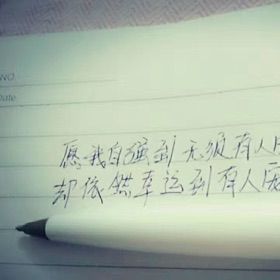 NO.
Date
愿我自强到无须有人
却依然幸运到有人